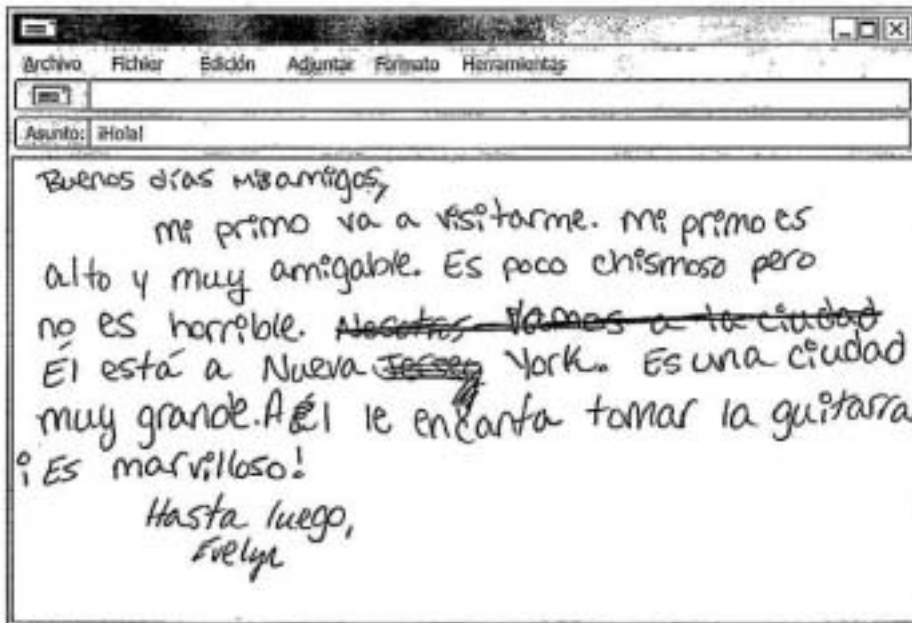 Archivo Fichier Edición Adjuntar Formato Herramientas
Asunto: ¡Hola!
Buenos días mis amigos,
mi primo va a visitarme. mi primo es
alto y muy amigable. Es poco chismoso pero
no es horrible. Nosotros vamos a la ciudad
Él está a Nueva Jersey York. Es una ciudad
muy grande. A él le encanta tomar la guitarra
¡Es marvilloso!
Hasta luego,
Evelyn